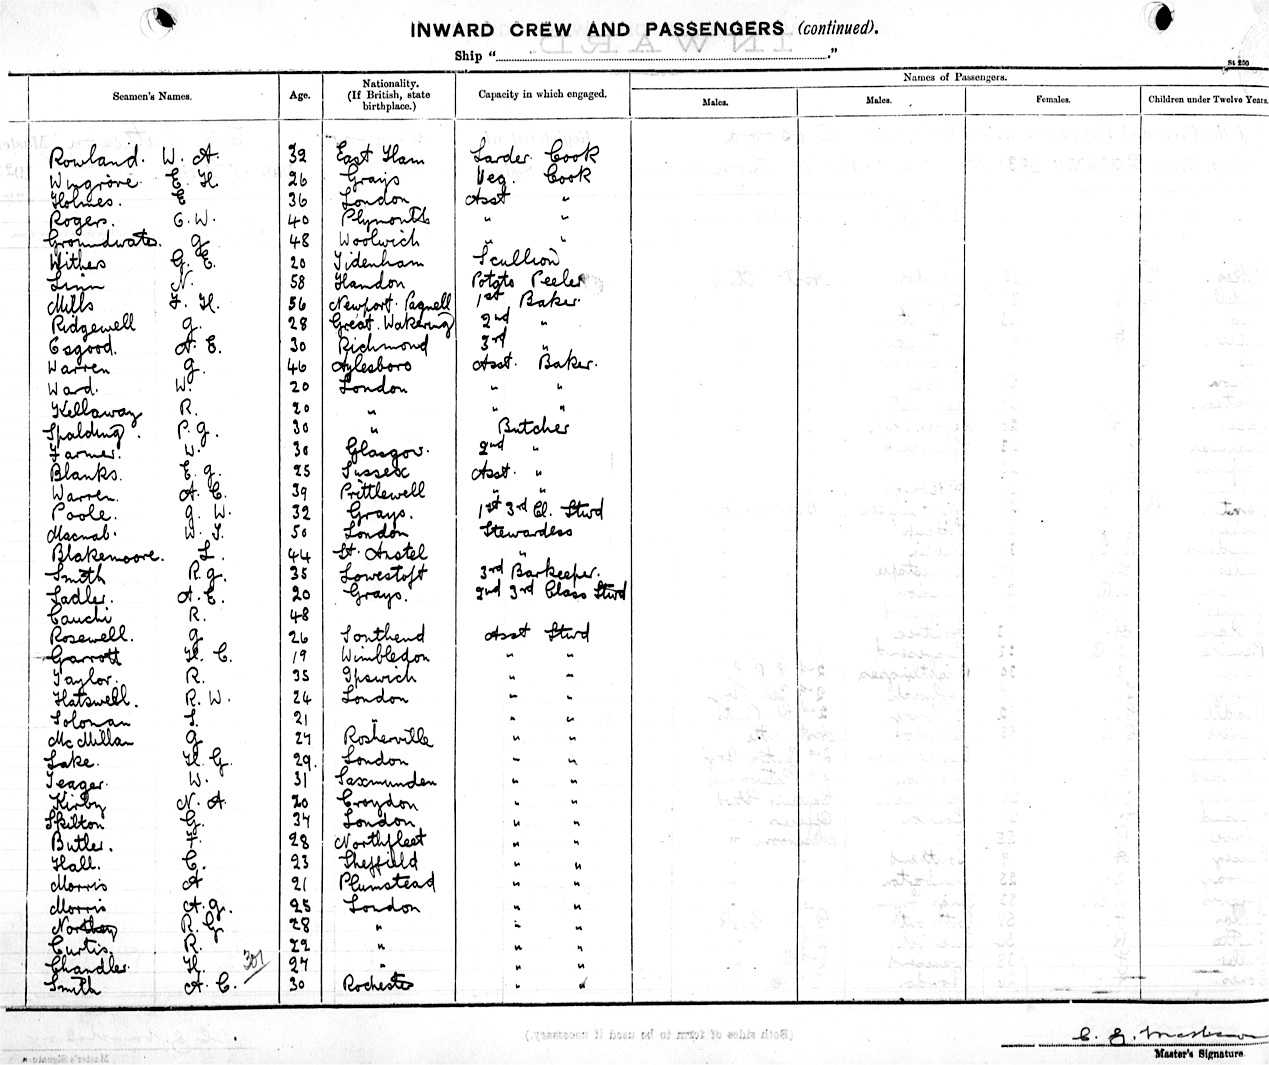 INWARD CREW AND PASSENGERS (continued).
Ship " "
St 200
Seamen's Names. Age. Nationality. (If British, state birthplace.) Capacity in which engaged. Names of Passengers.
Males. Males. Females. Children under Twelve Years.
Rowland. W. A. 32 East Ham Larder Cook
Wingrove E. H 26 Grays Veg. Cook
Holmes. E 36 London Asst "
Rogers. C. W. 40 Plymouth " "
Groundwater. J. 48 Woolwich " "
Withes G. E. 20 Tidenham Scullion
Linn N. 58 Hendon Potato Peeler
Mills F. H. 56 Newport Pagnell 1st Baker
Ridgewell J. 28 Great Wakering 2nd "
Osgood. A. E. 30 Richmond 3rd "
Warren J. 46 Aylesboro Asst. Baker.
Ward. W. 20 London " "
Kellaway R. 20 " " "
Spalding. P. J. 30 " Butcher
Farmer. W. 30 Glasgow. 2nd "
Blanks. E. J. 25 Sussex Asst. "
Warren. A. C. 39 Prittlewell " "
Poole. J. W. 32 Grays. 1st 3rd Cl. Stwd
Macnab. W. J. 50 London Stewardess
Blakemoore. L. 44 St. Austel "
Smith R. J. 35 Lowestoft 3rd Barkeeper.
Sadler. A. E. 20 Grays. 2nd 3rd Class Stwd
Cauchi R. 48
Rosewell. J 26 Southend Asst Stwd
Garrott H. C. 19 Wimbledon " "
Taylor. R. 35 Ipswich " "
Hatswell. R. W. 24 London " "
Solonan S. 21 " " "
McMillan J 27 Rosherville " "
Lake. H. G. 29. London " "
Teager. W. 31 Saxmunden " "
Kirby N. A. 20 Croydon " "
Skilton G. 34 London " "
Butler. F. 28 Northfleet " "
Hall. C. 23 Sheffield " "
Morris A 21 Plumstead " "
Morris A. J. 25 London " "
R. G 28 " " "
Curtis. R. 22 " " "
Chandler. H. 301 27 " " "
Smith A. C. 30 Rochester " "
(Both sides of form to be used if necessary.)
Master's Signature.